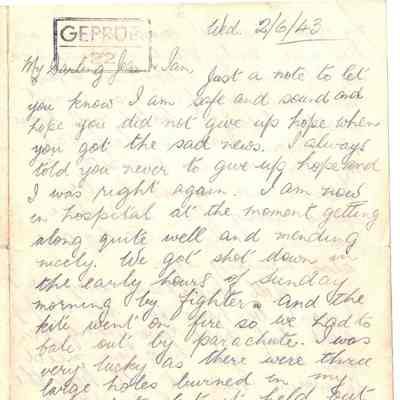 GEPRÜFT
22
Wed. 2/6/43
My darling Jean & Ian,
Just a note to let
you know I am safe and sound and
hope you did not give up hope when
you got the sad news. I always
told you never to give up hope and
I was right again. I am now
in hospital at the moment getting
along quite well and mending
nicely. We got shot down in
the early hours of Sunday
morning by fighters and the
kite went on fire so we had to
bale out by parachute. I was
very lucky as there were three
large holes burned in my
it held but